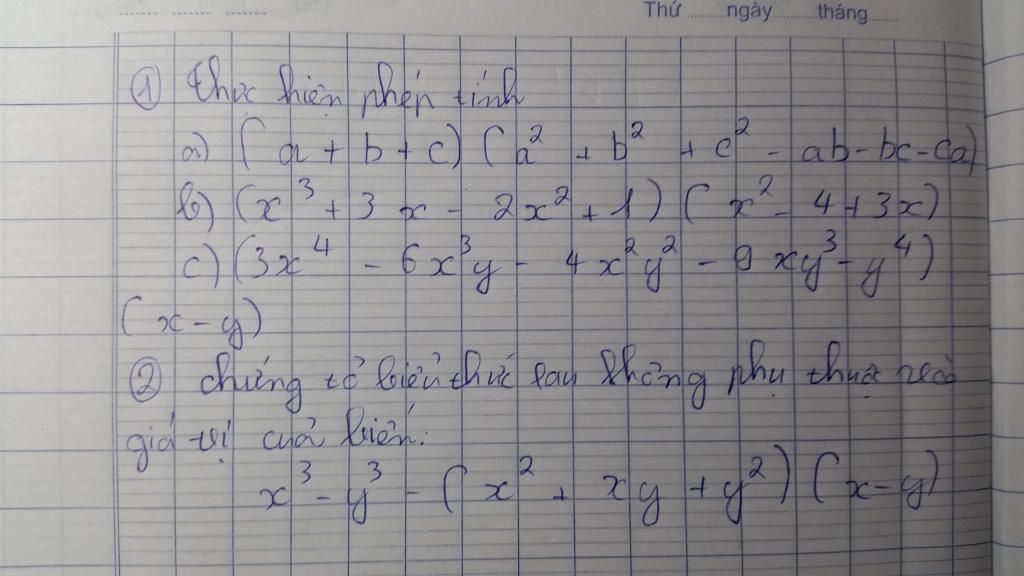 Thứ ........ngày.........tháng......
① thực hiện phép tính
a) (a + b + c) (a² + b² + c² - ab - bc - ca)
b) (x³ + 3x - 2x² + 1) (x² - 4 + 3x)
c) (3x⁴ - 6x³y - 4x²y² - 9xy³ - y⁴)
(x - y)
② chứng tỏ biểu thức sau không phụ thuộc vào
giá trị của biến:
x³ - y³ - (x² + xy + y²) (x - y)